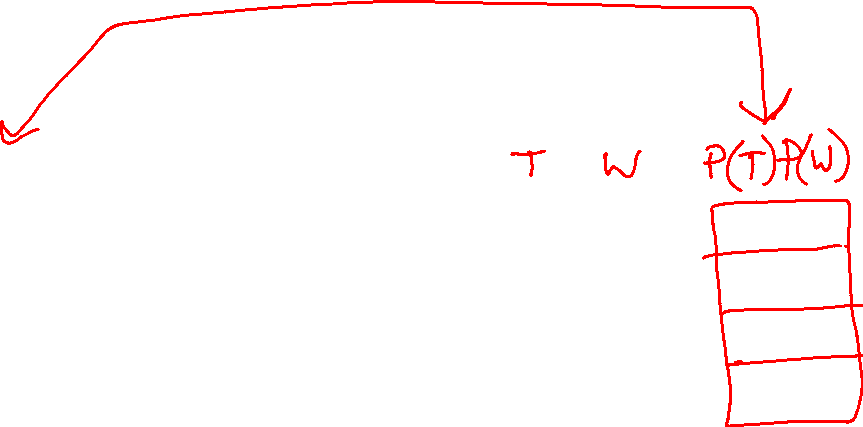 T W P(T)P(W)